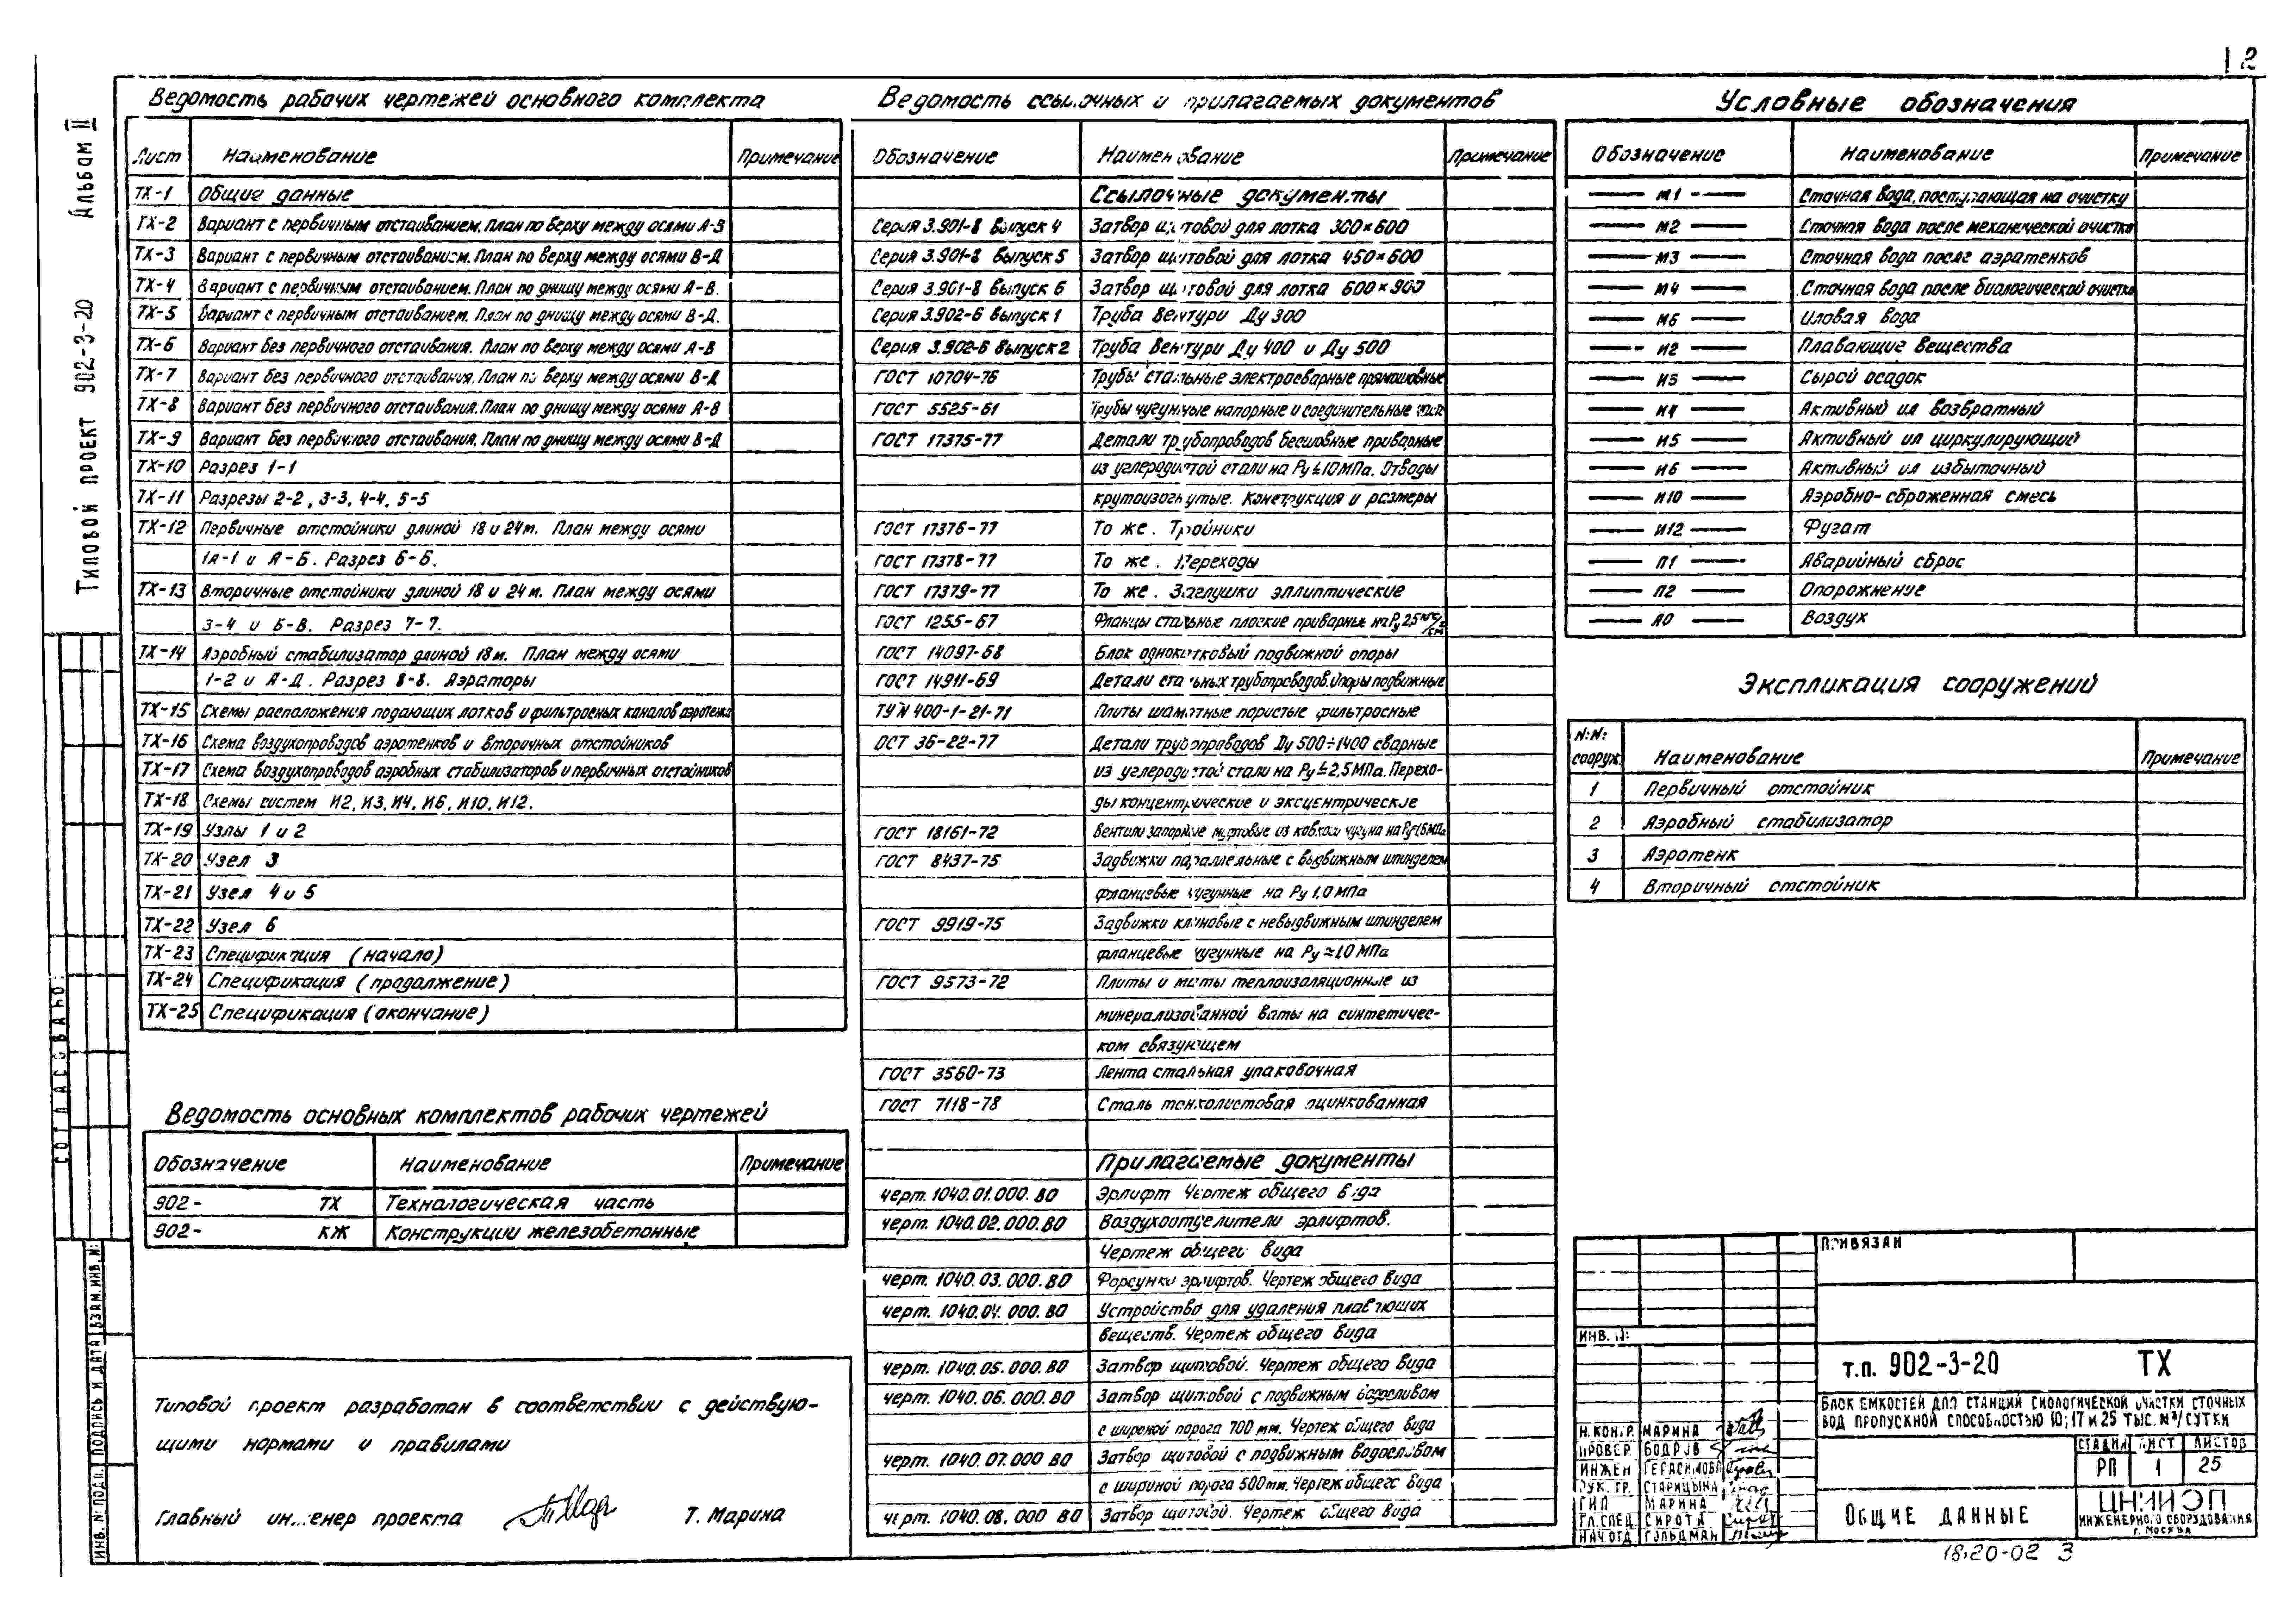 2
Альбом II
Типовой проект 902-3-20
Ведомость рабочих чертежей основного комплекта
Лист Наименование Примечание
ТХ-1 Общие данные
ТХ-2 Вариант с первичным отстаиванием. План по верху между осями А-В
ТХ-3 Вариант с первичным отстаиванием. План по верху между осями В-Д
ТХ-4 Вариант с первичным отстаиванием. План по днищу между осями А-В.
ТХ-5 Вариант с первичным отстаиванием. План по днищу между осями В-Д.
ТХ-6 Вариант без первичного отстаивания. План по верху между осями А-В
ТХ-7 Вариант без первичного отстаивания. План по верху между осями В-Д
ТХ-8 Вариант без первичного отстаивания. План по днищу между осями А-В
ТХ-9 Вариант без первичного отстаивания. План по днищу между осями В-Д
ТХ-10 Разрез 1-1
ТХ-11 Разрезы 2-2, 3-3, 4-4, 5-5
ТХ-12 Первичные отстойники длиной 18 и 24м. План между осями
1А-1 и А-Б. Разрез 6-6.
ТХ-13 Вторичные отстойники длиной 18 и 24м. План между осями
3-4 и Б-В. Разрез 7-7.
ТХ-14 Аэробный стабилизатор длиной 18м. План между осями
1-2 и А-Д. Разрез 8-8. Аэраторы
ТХ-15 Схемы расположения подающих лотков и фильтросных каналов аэротенка
ТХ-16 Схема воздухопроводов аэротенков и вторичных отстойников
ТХ-17 Схема воздухопроводов аэробных стабилизаторов и первичных отстойников
ТХ-18 Схемы систем И2, И3, И4, И6, И10, И12.
ТХ-19 Узлы 1 и 2
ТХ-20 Узел 3
ТХ-21 Узел 4 и 5
ТХ-22 Узел 6
ТХ-23 Спецификация (начало)
ТХ-24 Спецификация (продолжение)
ТХ-25 Спецификация (окончание)
Ведомость основных комплектов рабочих чертежей
Обозначение Наименование Примечание
902- ТХ Технологическая часть
902- КЖ Конструкции железобетонные
Типовой проект разработан в соответствии с действую-
щими нормами и правилами
Главный инженер проекта Т. Марина
Ведомость ссылочных и прилагаемых документов
Обозначение Наименование Примечание
Ссылочные документы
Серия 3.901-8 Выпуск 4 Затвор щитовой для лотка 300×600
Серия 3.901-8 Выпуск 5 Затвор щитовой для лотка 450×600
Серия 3.901-8 Выпуск 6 Затвор щитовой для лотка 600×900
Серия 3.902-6 Выпуск 1 Труба Вентури Ду 300
Серия 3.902-6 Выпуск 2 Труба Вентури Ду 400 и Ду 500
ГОСТ 10704-76 Трубы стальные электросварные прямошовные
ГОСТ 5525-61 Трубы чугунные напорные и соединительные части
ГОСТ 17375-77 Детали трубопроводов бесшовные приварные
из углеродистой стали на Ру≤10МПа. Отводы
крутоизогнутые. Конструкция и размеры
ГОСТ 17376-77 То же. Тройники
ГОСТ 17378-77 То же. Переходы
ГОСТ 17379-77 То же. Заглушки эллиптические
ГОСТ 1255-67 Фланцы стальные плоские приварные на Ру 25 кгс/см²
ГОСТ 14097-68 Блок однокатковый подвижной опоры
ГОСТ 14911-69 Детали стальных трубопроводов. Опоры подвижные
ТУ № 400-1-21-71 Плиты шамотные пористые фильтросные
ОСТ 36-22-77 Детали трубопроводов Ду 500÷1400 сварные
из углеродистой стали на Ру≤2,5МПа. Перехо-
ды концентрические и эксцентрические
ГОСТ 18161-72 Вентили запорные муфтовые из ковкого чугуна на Ру 1,6 МПа
ГОСТ 8437-75 Задвижки параллельные с выдвижным шпинделем
фланцевые чугунные на Ру 1,0 МПа
ГОСТ 9919-75 Задвижки клиновые с невыдвижным шпинделем
фланцевые чугунные на Ру≈1.0 МПа
ГОСТ 9573-72 Плиты и маты теплоизоляционные из
минерализованной ваты на синтетичес-
ком связующем
ГОСТ 3560-73 Лента стальная упаковочная
ГОСТ 7118-78 Сталь тонколистовая оцинкованная
Прилагаемые документы
черт. 1040.01.000.ВО Эрлифт Чертеж общего вида
черт. 1040.02.000.ВО Воздухоотделители эрлифтов.
Чертеж общего вида
черт. 1040.03.000.ВО Форсунки эрлифтов. Чертеж общего вида
черт. 1040.04.000.ВО Устройство для удаления плавающих
веществ. Чертеж общего вида
черт. 1040.05.000.ВО Затвор щитовой. Чертеж общего вида
черт. 1040.06.000.ВО Затвор щитовой с подвижным водосливом
с шириной порога 700 мм. Чертеж общего вида
черт. 1040.07.000 ВО Затвор щитовой с подвижным водосливом
с шириной порога 500мм. Чертеж общего вида
черт. 1040.08.000 ВО Затвор щитовой. Чертеж общего вида
Условные обозначения
Обозначение Наименование Примечание
М1 Сточная вода, поступающая на очистку
М2 Сточная вода после механической очистки
М3 Сточная вода после аэратенков
М4 Сточная вода после биологической очистки
И6 Иловая вода
И2 Плавающие вещества
И3 Сырой осадок
И4 Активный ил возвратный
И5 Активный ил циркулирующий
И6 Активный ил избыточный
И10 Аэробно-сброженная смесь
И12 Фугат
П1 Аварийный сброс
П2 Опорожнение
А0 Воздух
Экспликация сооружений
N:N: сооруж. Наименование Примечание
1 Первичный отстойник
2 Аэробный стабилизатор
3 Аэротенк
4 Вторичный отстойник
Привязан
Инв. №:
т.п. 902-3-20 ТХ
Блок емкостей для станций биологической очистки сточных
вод пропускной способностью 10; 17 и 25 тыс. м³/сутки
Н.контр. Марина
Провер. Бодров
Инжен Герасимова
Рук. гр. Старицына
ГИП Марина
Гл.спец Сирота
Нач.отд Гольдман
Стадия Лист Листов
РП 1 25
Общие данные
ЦНИИЭП
инженерного оборудования
г. Москва
18220-02 3
Согласовано:
Взам. инв. №:
Подпись и дата
Инв. № подл.